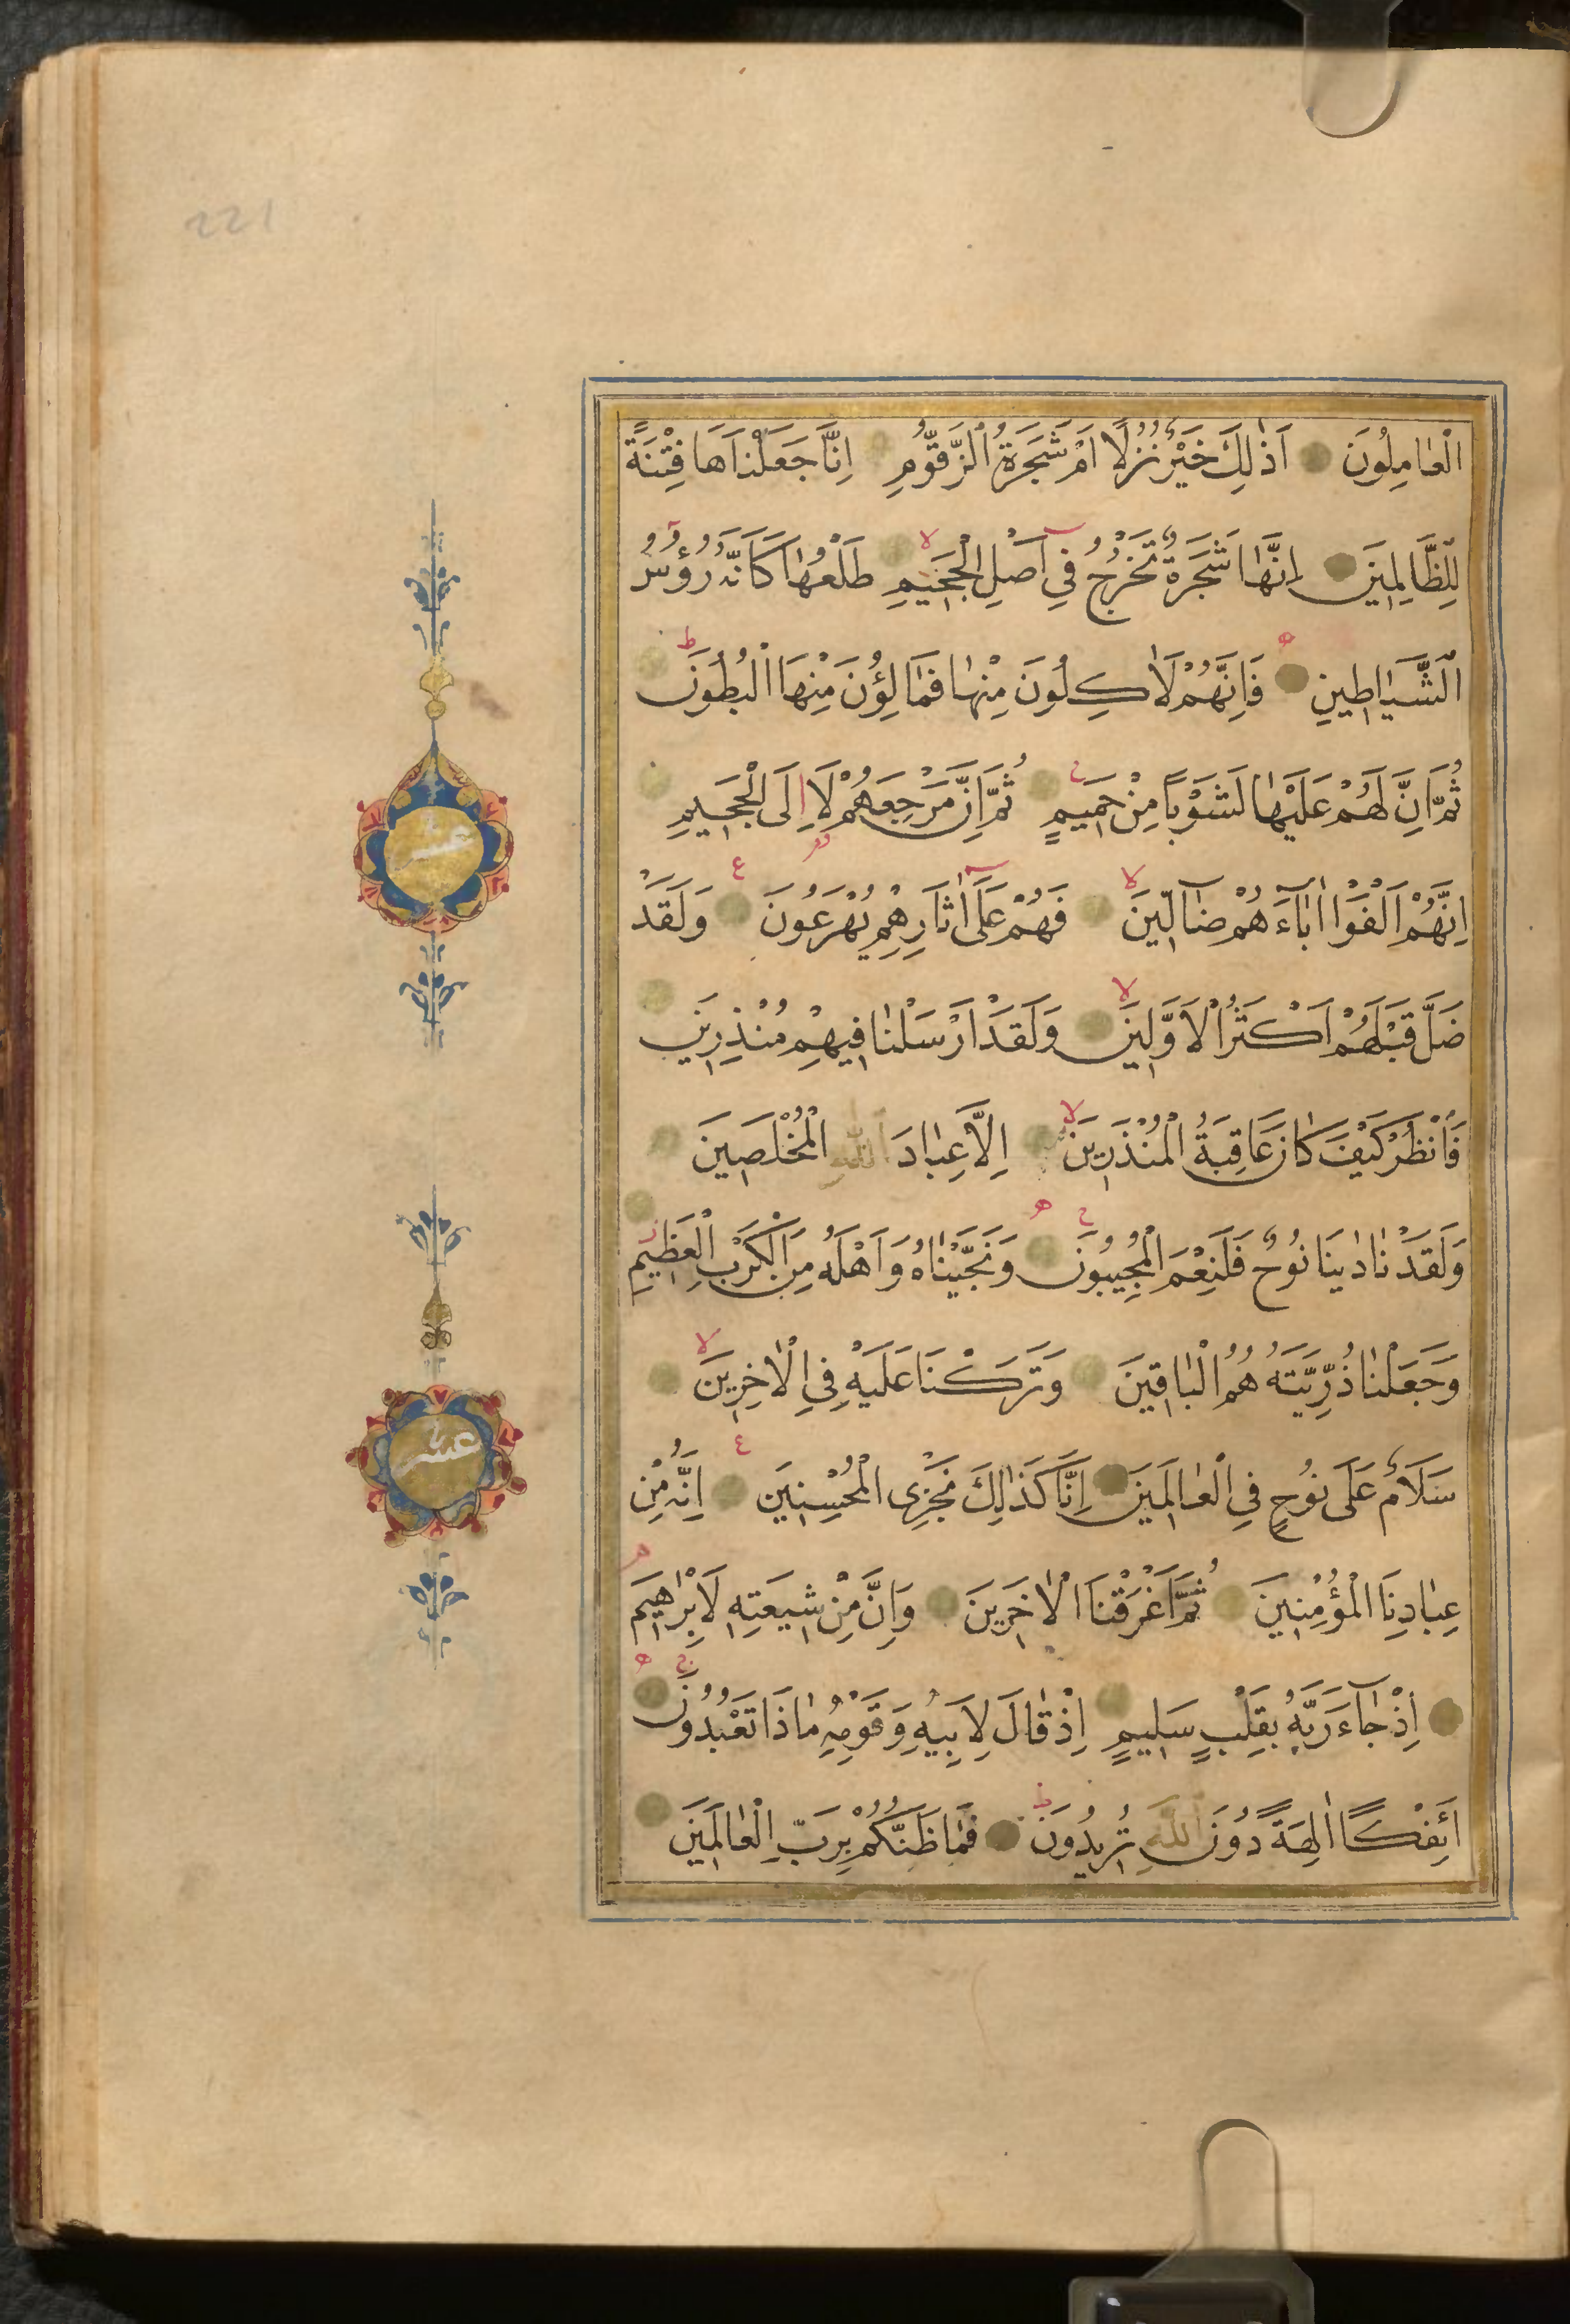 221
الْعَامِلُونَ اَذٰلِكَ خَيْرٌ نُزُلًا اَمْ شَجَرَةُ الزَّقُّومِ اِنَّا جَعَلْنَاهَا فِتْنَةً
لِلظَّالِمِينَ اِنَّهَا شَجَرَةٌ تَخْرُجُ فِي اَصْلِ الْجَحِيمِ طَلْعُهَا كَاَنَّهُ رُؤُسُ
الشَّيَاطِينِ فَاِنَّهُمْ لَاٰكِلُونَ مِنْهَا فَمَالِؤُنَ مِنْهَا الْبُطُونَ
ثُمَّ اِنَّ لَهُمْ عَلَيْهَا لَشَوْبًا مِنْ حَمِيمٍ ثُمَّ اِنَّ مَرْجِعَهُمْ لَا اِلَى الْجَحِيمِ
اِنَّهُمْ اَلْفَوْا اٰبَاءَهُمْ ضَالِّينَ فَهُمْ عَلَى اٰثَارِهِمْ يُهْرَعُونَ وَلَقَدْ
ضَلَّ قَبْلَهُمْ اَكْثَرُ الْاَوَّلِينَ وَلَقَدْ اَرْسَلْنَا فِيهِمْ مُنْذِرِينَ
فَانْظُرْ كَيْفَ كَانَ عَاقِبَةُ الْمُنْذَرِينَ اِلَّا عِبَادَ اللّٰهِ الْمُخْلَصِينَ
وَلَقَدْ نَادٰينَا نُوحٌ فَلَنِعْمَ الْمُجِيبُونَ وَنَجَّيْنَاهُ وَاَهْلَهُ مِنَ الْكَرْبِ الْعَظِيمِ
وَجَعَلْنَا ذُرِّيَّتَهُ هُمُ الْبَاقِينَ وَتَرَكْنَا عَلَيْهِ فِي الْاٰخِرِينَ
سَلَامٌ عَلَى نُوحٍ فِي الْعَالَمِينَ اِنَّا كَذَالِكَ نَجْزِى الْمُحْسِنِينَ اِنَّهُ مِنْ
عِبَادِنَا الْمُؤْمِنِينَ ثُمَّ اَغْرَقْنَا الْاٰخَرِينَ وَاِنَّ مِنْ شِيعَتِهِ لَاِبْرٰهِيمَ
اِذْ جَاءَ رَبَّهُ بِقَلْبٍ سَلِيمٍ اِذْ قَالَ لِاَبِيهِ وَقَوْمِهِ مَاذَا تَعْبُدُونَ
اَئِفْكًا اٰلِهَةً دُونَ اللّٰهِ تُرِيدُونَ فَمَا ظَنُّكُمْ بِرَبِّ الْعَالَمِينَ
عشر
عشر